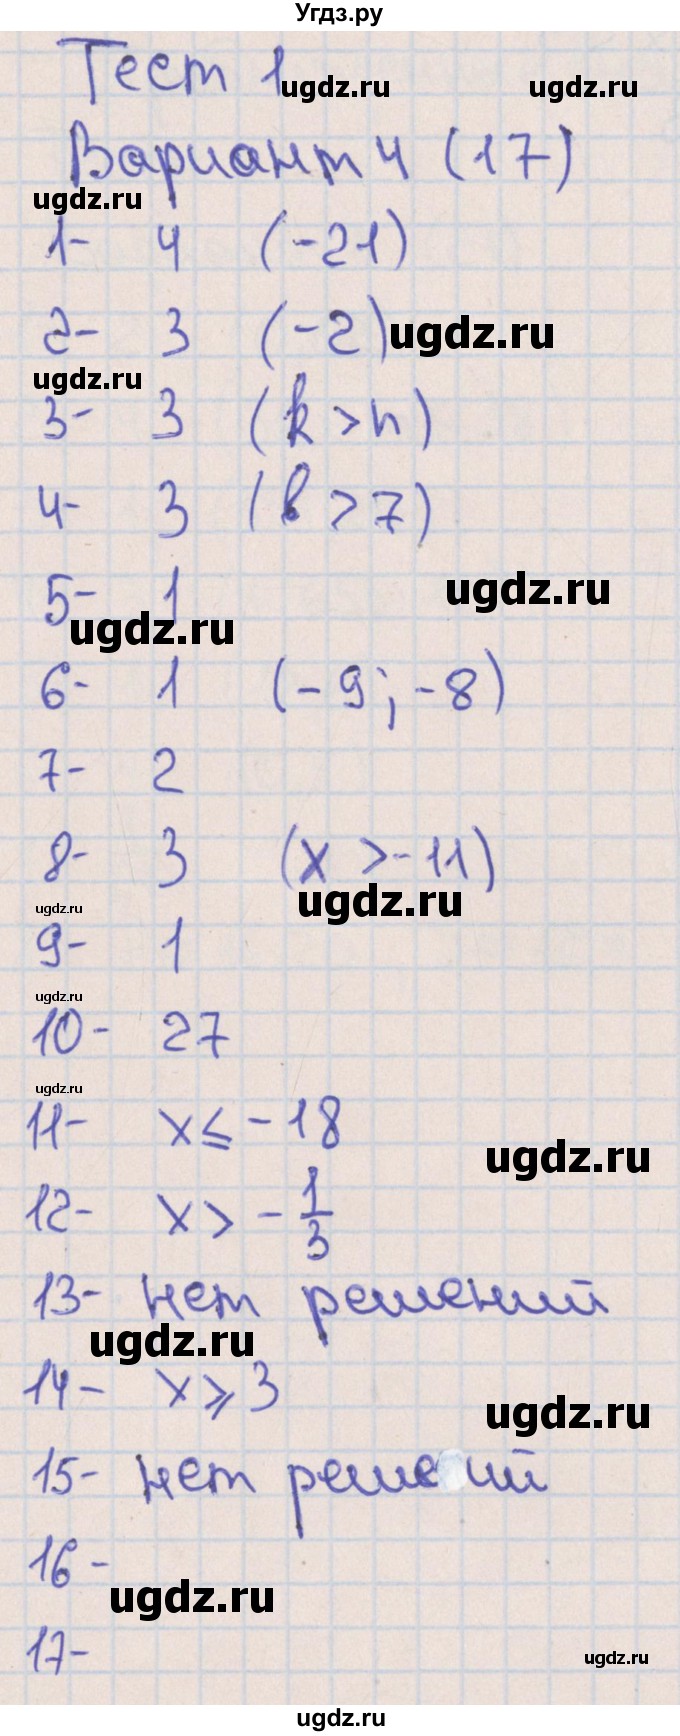 Угдз.ру
Тест 1
ugdz.ru ugdz.ru
Вариант 4 (17)
ugdz.ru
1- 4 (-21)
2- 3 (-2)
ugdz.ru
ugdz.ru
3- 3 (k > n)
4- 3 (b > 7)
5- 1
ugdz.ru
ugdz.ru
6- 1 (-9; -8)
7- 2
8- 3 (x > -11)
ugdz.ru
ugdz.ru
9- 1
ugdz.ru
10- 27
ugdz.ru
11- x ≤ -18
ugdz.ru
12- x > -1/3
13- нет решений
ugdz.ru
14- x ⩾ 3
ugdz.ru
15- нет реше ий
16-
ugdz.ru
17-
ugdz.ru
ugdz.ru